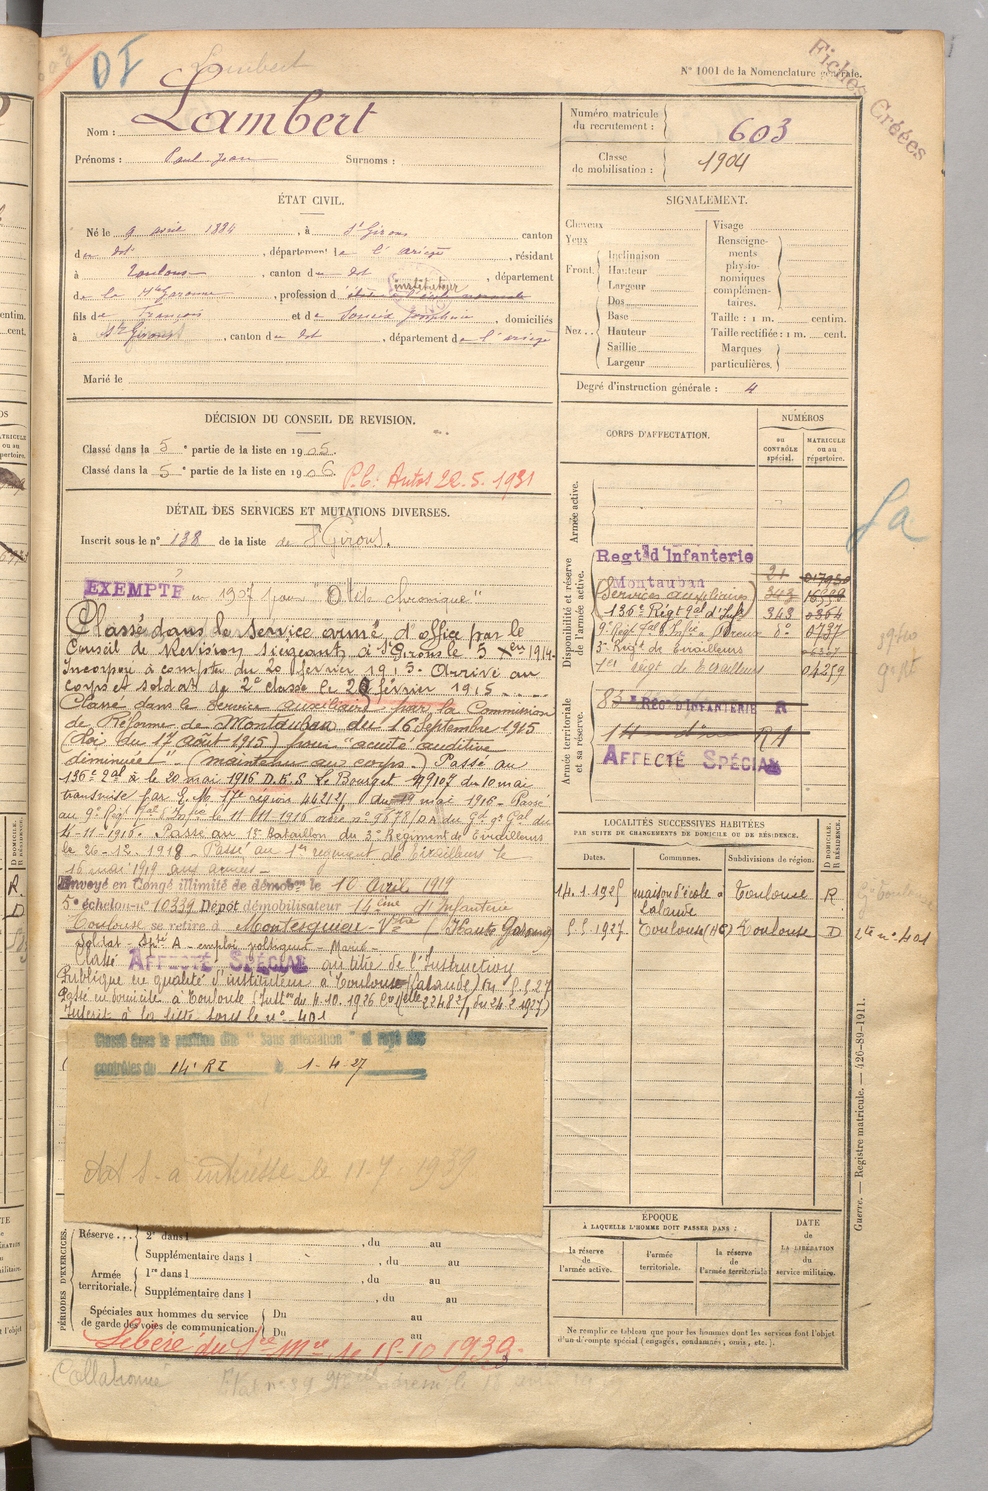 DI
Lambert
N° 1001 de la Nomenclature générale.
Fiches Créées
Nom : Lambert
Prénoms : Paul Jean Surnoms :
Numéro matricule du recrutement : 603
Classe de mobilisation : 1904
ÉTAT CIVIL.
Né le 9 avril 1884, à St Girons canton
du dit, département de l'ariège, résidant
à Toulouse, canton du dit, département
instituteur
de la Hte Garonne, profession d'élève à l'école normale
fils de François et de Josephine, domiciliés
à St Girons, canton du dit, département de l'ariège
Marié le
SIGNALEMENT.
Cheveux
Yeux
Front. Inclinaison
Hauteur
Largeur
Nez.. Dos
Base
Hauteur
Saillie
Largeur
Visage
Renseignements physionomiques complémentaires.
Taille : 1 m. centim.
Taille rectifiée : 1 m. cent.
Marques particulières.
Degré d'instruction générale : 4
DÉCISION DU CONSEIL DE REVISION.
Classé dans la 5e partie de la liste en 1905.
Classé dans la 5e partie de la liste en 1906.
P.C. Autos 22.5.1931
DÉTAIL DES SERVICES ET MUTATIONS DIVERSES.
Inscrit sous le n° 138 de la liste de St Girons.
EXEMPTÉ en 1907 pour "Otite chronique"
Classé dans le service armé d'office par le
Conseil de Revision siégeant à St Girons le 5 Xbre 1914.
Incorporé à compter du 20 février 1915. Arrivé au
corps et soldat de 2e classe le 20 février 1915
Classé dans le service auxiliaire par la Commission
de Réforme de Montauban du 16 Septembre 1915
(Loi du 17 août 1915) pour "acuité auditive
diminuée". (maintenu au corps.) Passé au
136e Ral à le 30 mai 1916 D.E.S Le Bourget 49107 du 10 mai
transmise par E.M. 17e région 4621 2/1 du 19 mai 1916 - Passé
au 9e Régt d'Infie le 11 1916 ordre n° 9678/DA du Gd Qr Gal du
4-11-1916. Passé au 1er Bataillon du 3e Régiment de Tirailleurs
le 26-12-1918 - Passé au 1er régiment de Tirailleurs le
16 mai 1919 aux armées
Envoyé en Congé illimité de démob. le 10 Avril 1919
5e échelon n° 10339 Dépôt démobilisateur 14ème d'Infanterie
Toulouse se retire à Montesquieu-Vtre (Haute Garonne)
Soldat - Apte A - emploi voltigeur - Marié
Classé AFFECTÉ SPÉCIAL au titre de l'Instruction
Publique en qualité d'instituteur à Toulouse (Lalande) du 5.5.27
Passé en domicile à Toulouse (Juston du 4.10.1926 Cirelle 22482/1 du 24.2.1927)
Inscrit à la liste sous le n° 401
Classé dans la position dite "Sans affectation" et rayé des
contrôles du 14e RI le 1-4-27
intéressé le 11-7 1939
CORPS D'AFFECTATION.
NUMÉROS
au CONTRÔLE spécial.
MATRICULE ou au répertoire.
Armée active.
Disponibilité et réserve de l'armée active.
Regt d'Infanterie
Montauban
(Services auxiliaires)
136e Régt d'Infie 343
3e Régt de Tirailleurs
1er régt de Tirailleurs 04259
Armée territoriale et sa réserve.
83e REGt D'INFANTERIE R
14e d'Infie RA
AFFECTÉ SPÉCIAL
Sa
LOCALITÉS SUCCESSIVES HABITÉES
PAR SUITE DE CHANGEMENTS DE DOMICILE OU DE RÉSIDENCE.
Dates. Communes. Subdivisions de région. D DOMICILE. R RÉSIDENCE.
14.1.1925 maison d'école à Lalande Toulouse R
5.5.1927 Toulouse (HG) Toulouse D
Lte n° 401
ÉPOQUE
À LAQUELLE L'HOMME DOIT PASSER DANS :
la réserve de l'armée active.
l'armée territoriale.
la réserve de l'armée territoriale
DATE de LA LIBÉRATION du service militaire.
Ne remplir ce tableau que pour les hommes dont les services font l'objet
d'un décompte spécial (engagés, condamnés, omis, etc.).
PÉRIODES D'EXERCICES.
Réserve... 2e dans l , du au
Supplémentaire dans l , du au
Armée territoriale. 1re dans l , du au
Supplémentaire dans l , du au
Spéciales aux hommes du service de garde des voies de communication. Du au
Du au
Libéré du Sce Mre le 15-10 1939.
Collationné
Guerre. — Registre matricule. — 426-89-1911.